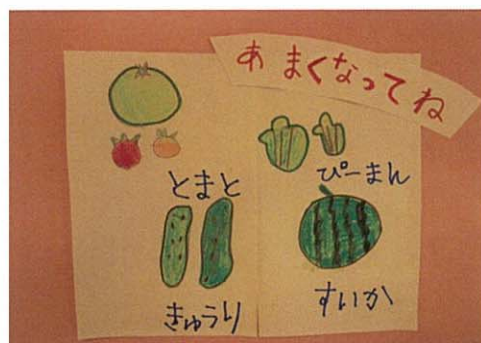 あまくなってね
とまと
ぴーまん
きゅうり
すいか